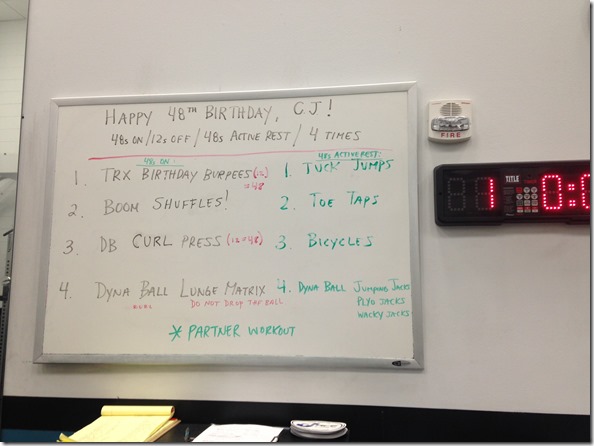 HAPPY 48TH BIRTHDAY, CJ!
48s ON/12s OFF/48s ACTIVE REST/4 TIMES
48s ON:
1. TRX BIRTHDAY BURPEES (12) =48
2. BOOM SHUFFLES!
3. DB CURL PRESS (12=48)
4. DYNA BALL LUNGE MATRIX
DO NOT DROP BALL
48s ACTIVE REST:
1. TUCK JUMPS
2. TOE TAPS
3. BICYCLES
4. DYNA BALL JUMPING JACKS
PLYO JACKS
WACKY JACKS
* PARTNER WORKOUT
FIRE
TITLE
1 0:0